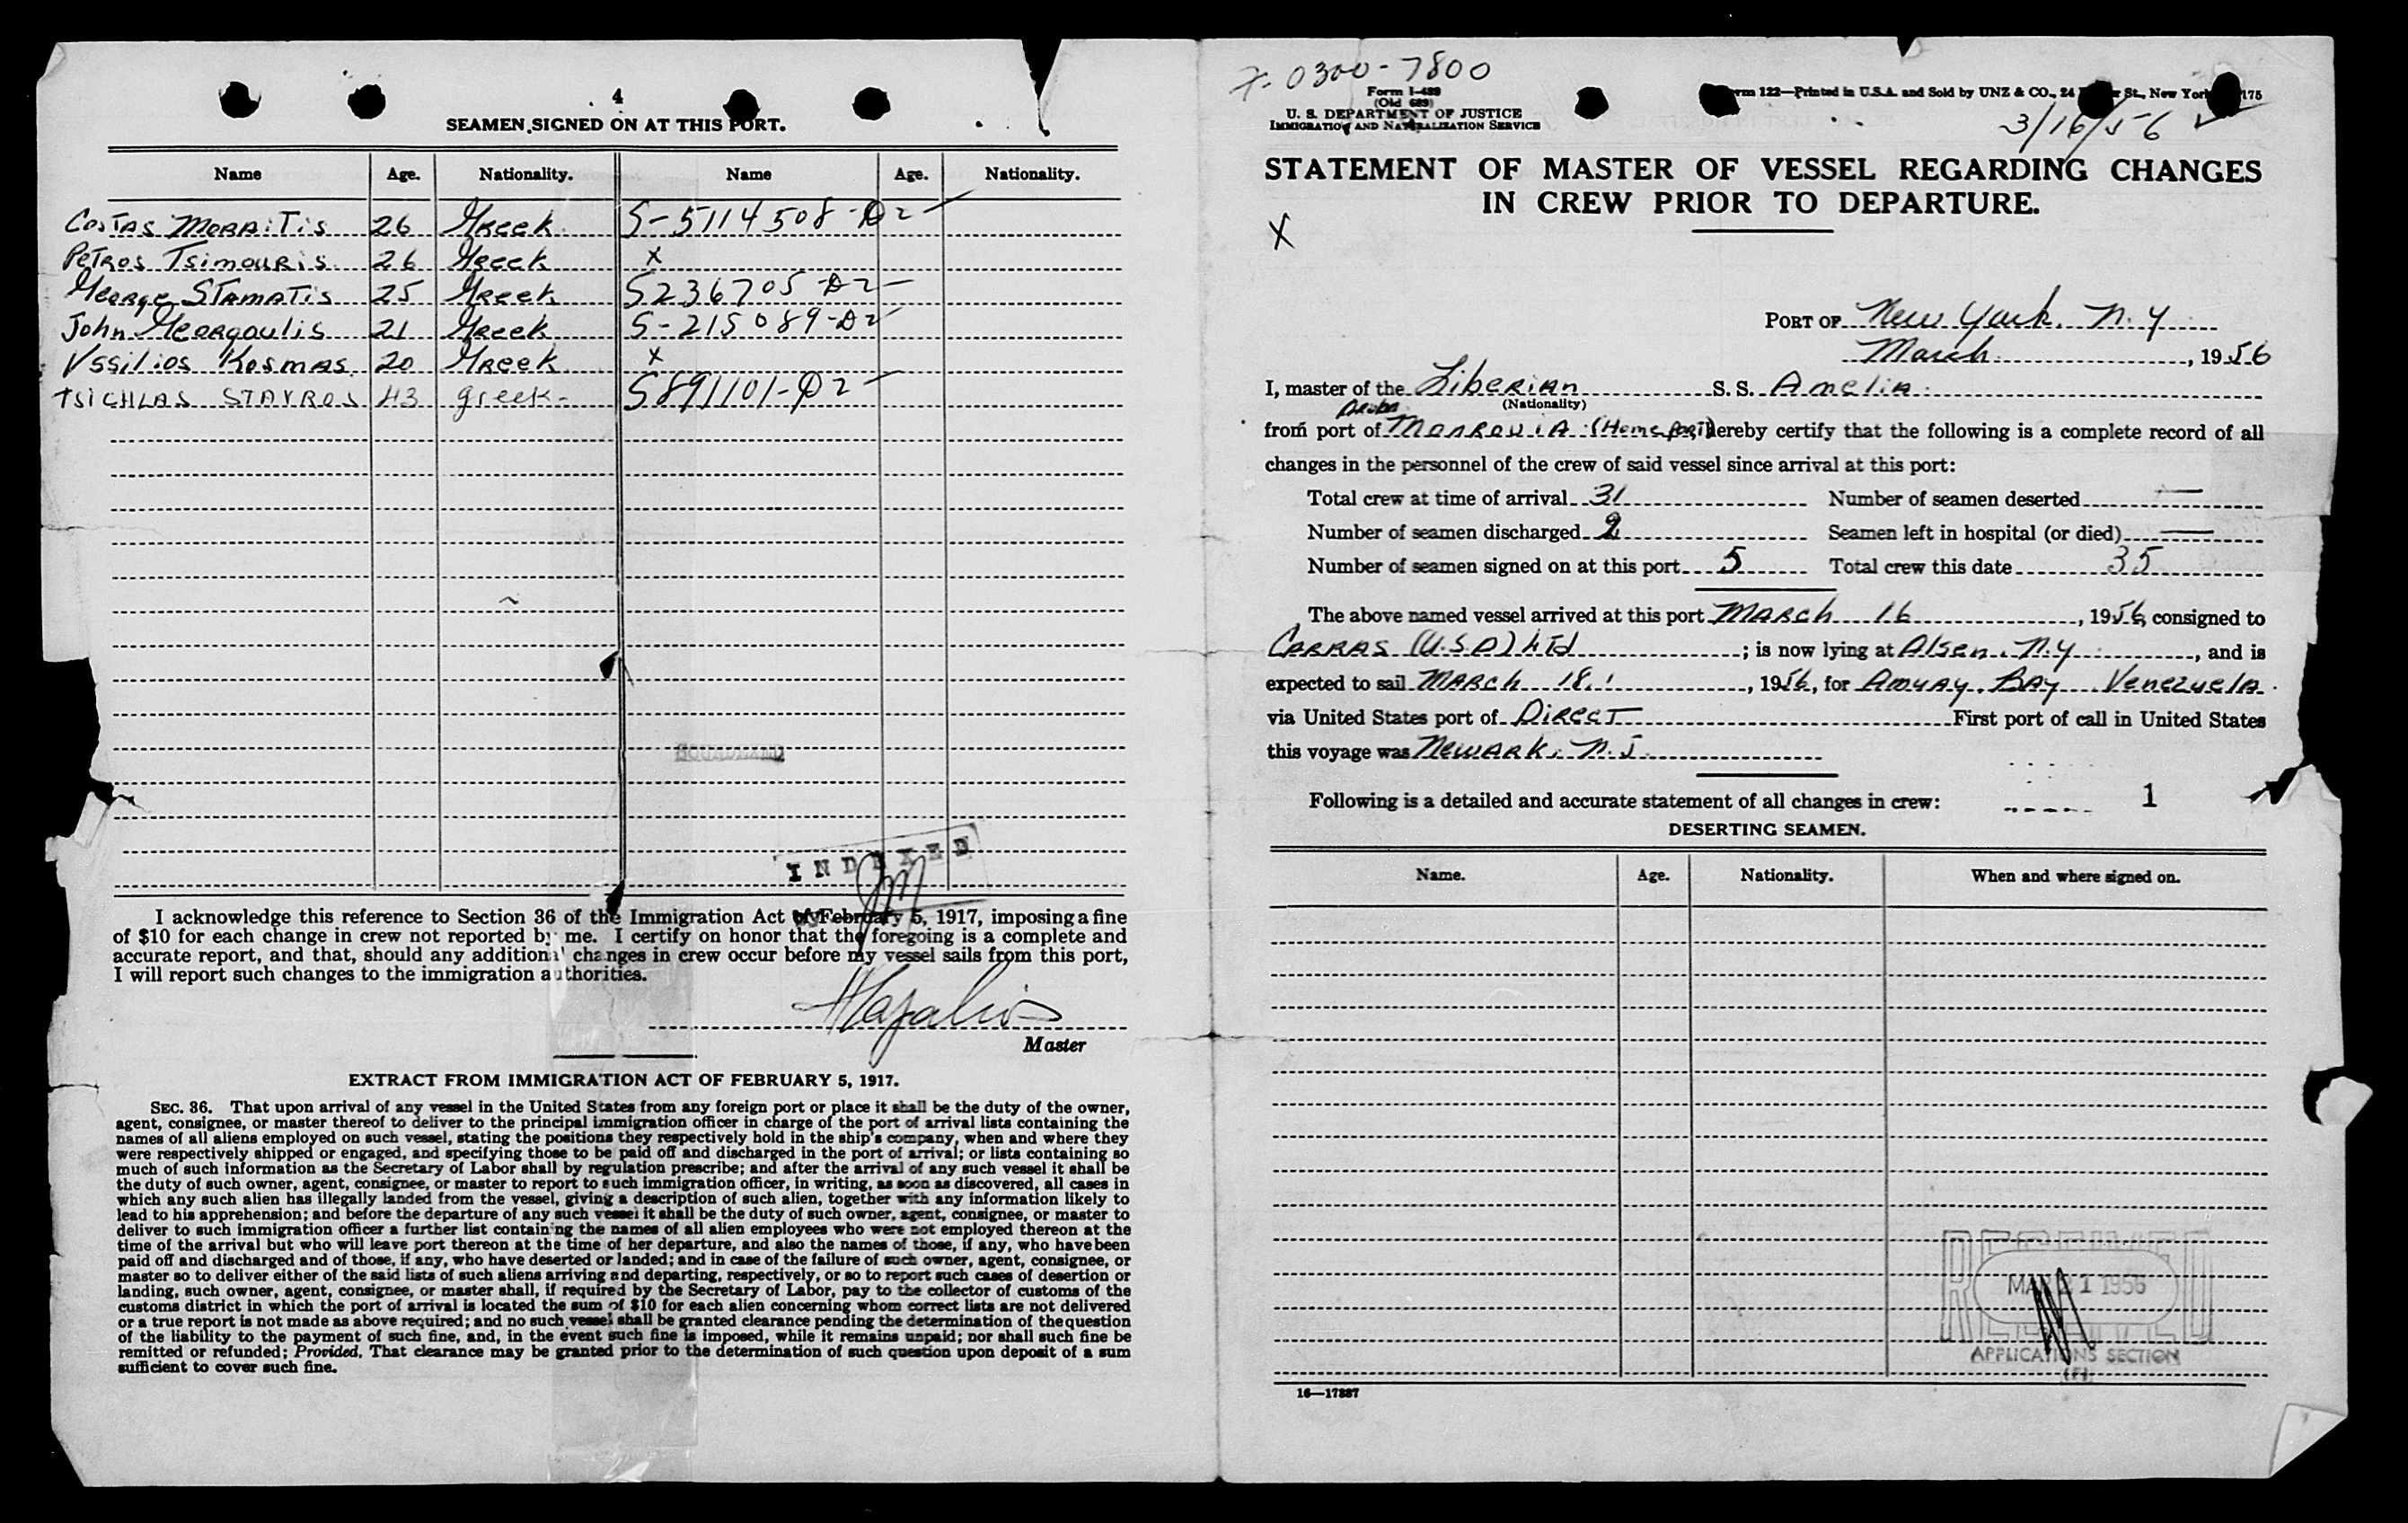 4
SEAMEN SIGNED ON AT THIS PORT.
Name Age. Nationality. Name Age. Nationality.
Costas Moraitis 26 Greek S-5114508-D2
Petros Tsimouris 26 Greek X
George Stamatis 25 Greek 5236705-D2
John Georgoulis 21 Greek S-215089-D2
Vssilios Kosmas 20 Greek X
TSICHLAS STAVROS 43 greek- 5891101-D2
INDEXED
I acknowledge this reference to Section 36 of the Immigration Act of February 5, 1917, imposing a fine
of $10 for each change in crew not reported by me. I certify on honor that the foregoing is a complete and
accurate report, and that, should any additional changes in crew occur before my vessel sails from this port,
I will report such changes to the immigration authorities.
Master
EXTRACT FROM IMMIGRATION ACT OF FEBRUARY 5, 1917.
SEC. 36. That upon arrival of any vessel in the United States from any foreign port or place it shall be the duty of the owner,
agent, consignee, or master thereof to deliver to the principal immigration officer in charge of the port of arrival lists containing the
names of all aliens employed on such vessel, stating the positions they respectively hold in the ship's company, when and where they
were respectively shipped or engaged, and specifying those to be paid off and discharged in the port of arrival; or lists containing so
much of such information as the Secretary of Labor shall by regulation prescribe; and after the arrival of any such vessel it shall be
the duty of such owner, agent, consignee, or master to report to such immigration officer, in writing, as soon as discovered, all cases in
which any such alien has illegally landed from the vessel, giving a description of such alien, together with any information likely to
lead to his apprehension; and before the departure of any such vessel it shall be the duty of such owner, agent, consignee, or master to
deliver to such immigration officer a further list containing the names of all alien employees who were not employed thereon at the
time of the arrival but who will leave port thereon at the time of her departure, and also the names of those, if any, who have been
paid off and discharged and of those, if any, who have deserted or landed; and in case of the failure of such owner, agent, consignee, or
master so to deliver either of the said lists of such aliens arriving and departing, respectively, or so to report such cases of desertion or
landing, such owner, agent, consignee, or master shall, if required by the Secretary of Labor, pay to the collector of customs of the
customs district in which the port of arrival is located the sum of $10 for each alien concerning whom correct lists are not delivered
or a true report is not made as above required; and no such vessel shall be granted clearance pending the determination of the question
of the liability to the payment of such fine, and, in the event such fine is imposed, while it remains unpaid; nor shall such fine be
remitted or refunded; Provided, That clearance may be granted prior to the determination of such question upon deposit of a sum
sufficient to cover such fine.
0300-7800
Form I-489
(Old 689)
U. S. DEPARTMENT OF JUSTICE
IMMIGRATION AND NATURALIZATION SERVICE
Form 122—Printed in U.S.A. and Sold by UNZ & CO., 24 St., New York 175
3/16/56
STATEMENT OF MASTER OF VESSEL REGARDING CHANGES
IN CREW PRIOR TO DEPARTURE.
X
PORT OF New York, N.Y
March, 1956
I, master of the Liberian S. S. Amelia
(Nationality)
Aruba
from port of Monrovia (Home port) hereby certify that the following is a complete record of all
changes in the personnel of the crew of said vessel since arrival at this port:
Total crew at time of arrival 31 Number of seamen deserted —
Number of seamen discharged 2 Seamen left in hospital (or died) —
Number of seamen signed on at this port 5 Total crew this date 35
The above named vessel arrived at this port March 16, 1956, consigned to
Carras (U.S.A) Ltd; is now lying at Alsen, N.Y, and is
expected to sail March 18, 1956, for Amuay Bay Venezuela
via United States port of Direct First port of call in United States
this voyage was Newark, N.J.
Following is a detailed and accurate statement of all changes in crew: 1
DESERTING SEAMEN.
Name. Age. Nationality. When and where signed on.
RECEIVED
MAR 21 1956
APPLICATIONS SECTION
16—17887